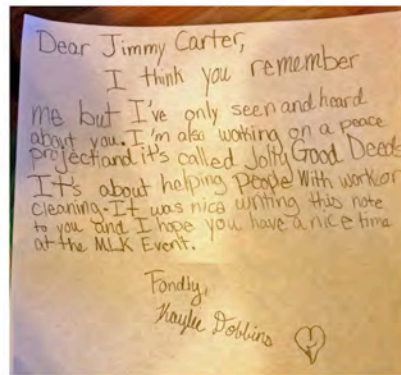 Dear Jimmy Carter,
I think you remember
me but I've only seen and heard
about you. I'm also working on a peace
project and it's called Jolty Good Deeds
It's about helping people with work or
cleaning. It was nice writing this note
to you and I hope you have a nice time
at the MLK Event.
Fondly,
Kaylee Dobbins